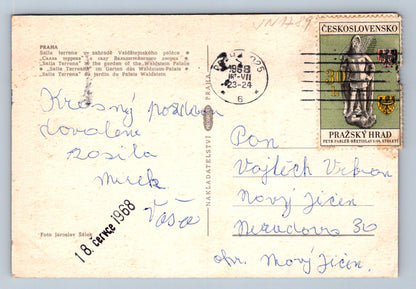 PRAHA
Salla terrena - v zahradě Valdštejnského paláce
"Салла террена" в саду Вальдштейнского дворца
"Salla Terrena" in the garden of the Waldstein-Palace
"Salla Terrena" im Garten des Waldstein-Palais
"Salla Terrena" du jardin du Palais Waldstein
Krásný pozdrav
dovolené
posílá
Mirek
Váša
18. července 1968
Foto Jaroslav
NAKLADATELSTVÍ PRAHA
PRAHA 025
1968
VII
23-24
6
ČESKOSLOVENSKO
PRAŽSKÝ HRAD
PETR PARLÉŘ-BŘETISLAV I-14. STOLETÍ
Pan
Vojtěch
Nový Jičín
36
okr. Nový Jičín